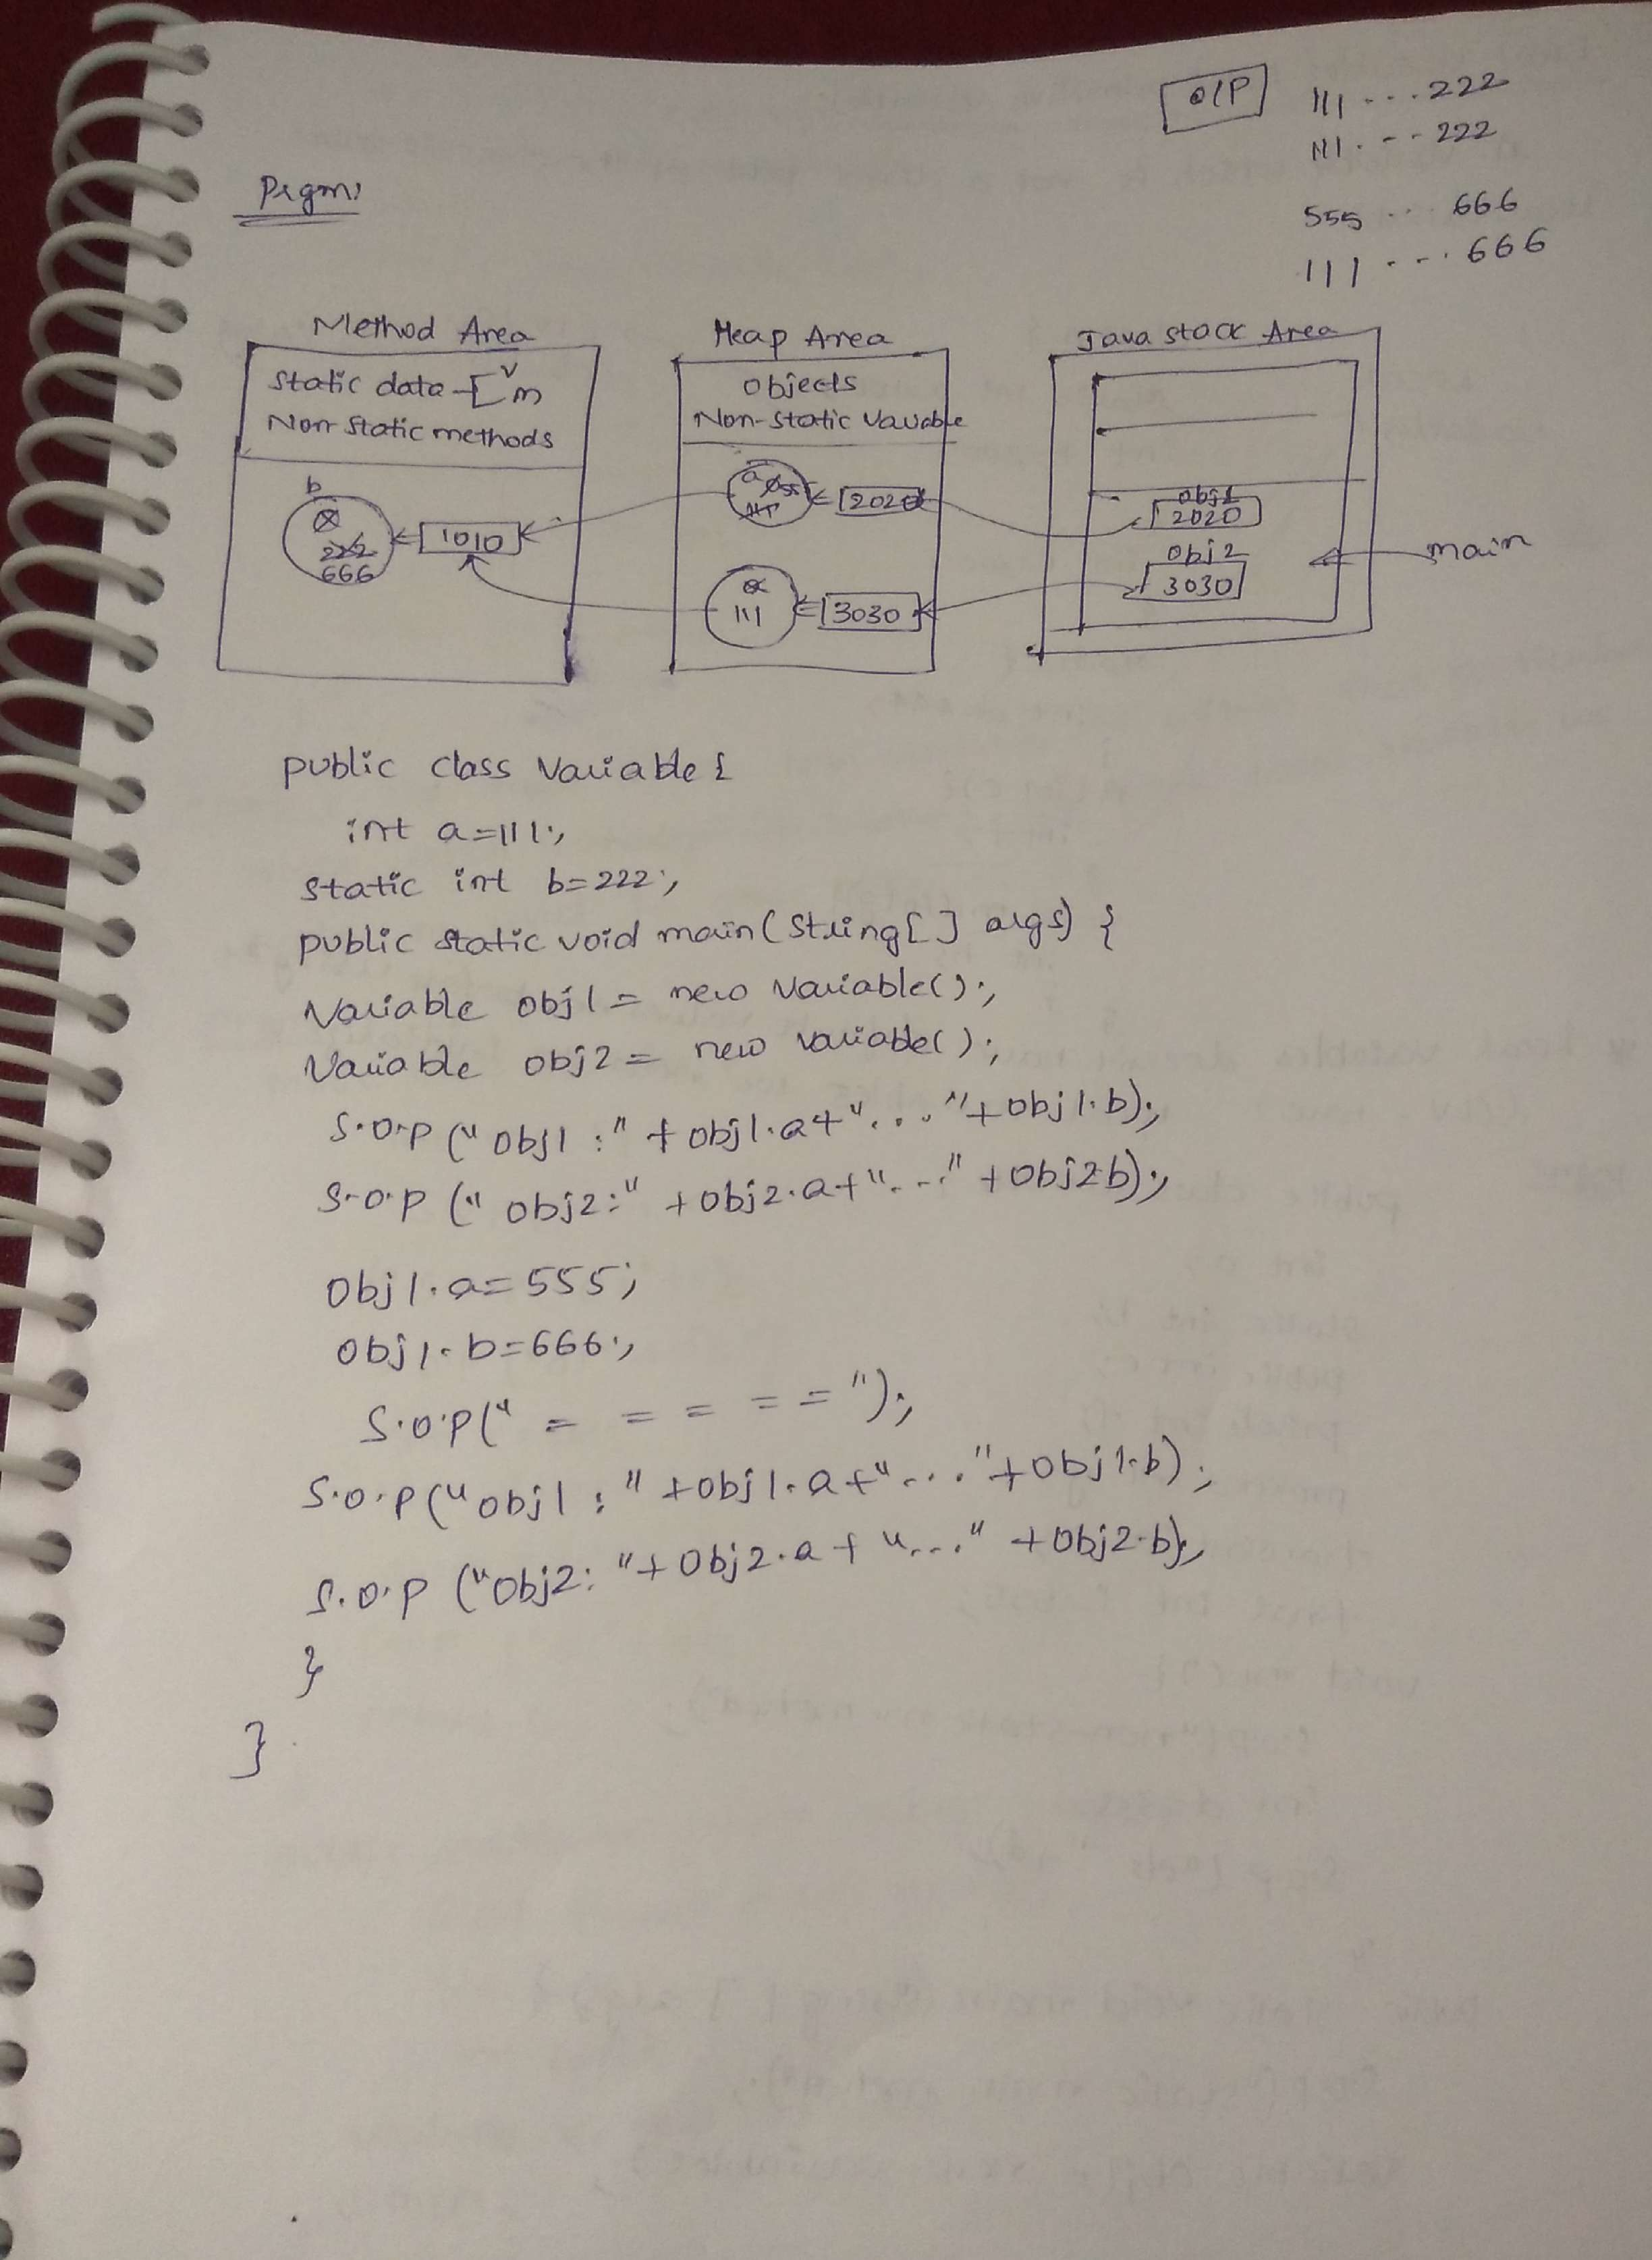 O/P 111 - - ..222
111. - - - 222
555 ... 666
111 - - .. 666
Prgm:
Method Area
Static data - [ v m
Non static methods
b
222
666
1010
Heap Area
Objects
Non-static Variable
a 555
111
2020
a
111
3030
Java stack Area
obj1
2020
obj2
3030
main
public class Variable {
int a=111;
static int b=222;
public static void main(String[] args) {
Variable obj1 = new Variable();
Variable obj2 = new variable();
S.O.P ("obj1 :" + obj1.a+"..."+obj1.b);
S.O.P (" obj2:" +obj2.a+"..." +obj2b);
obj1.a=555;
obj1.b=666;
S.O.P(" = = = = =");
S.O.P("obj1 :" +obj1.a+"..."+obj1.b);
S.O.P ("obj2: "+obj2.a+ "..." +obj2.b);
}
}